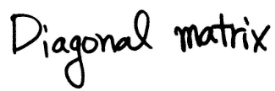 Diagonal matrix